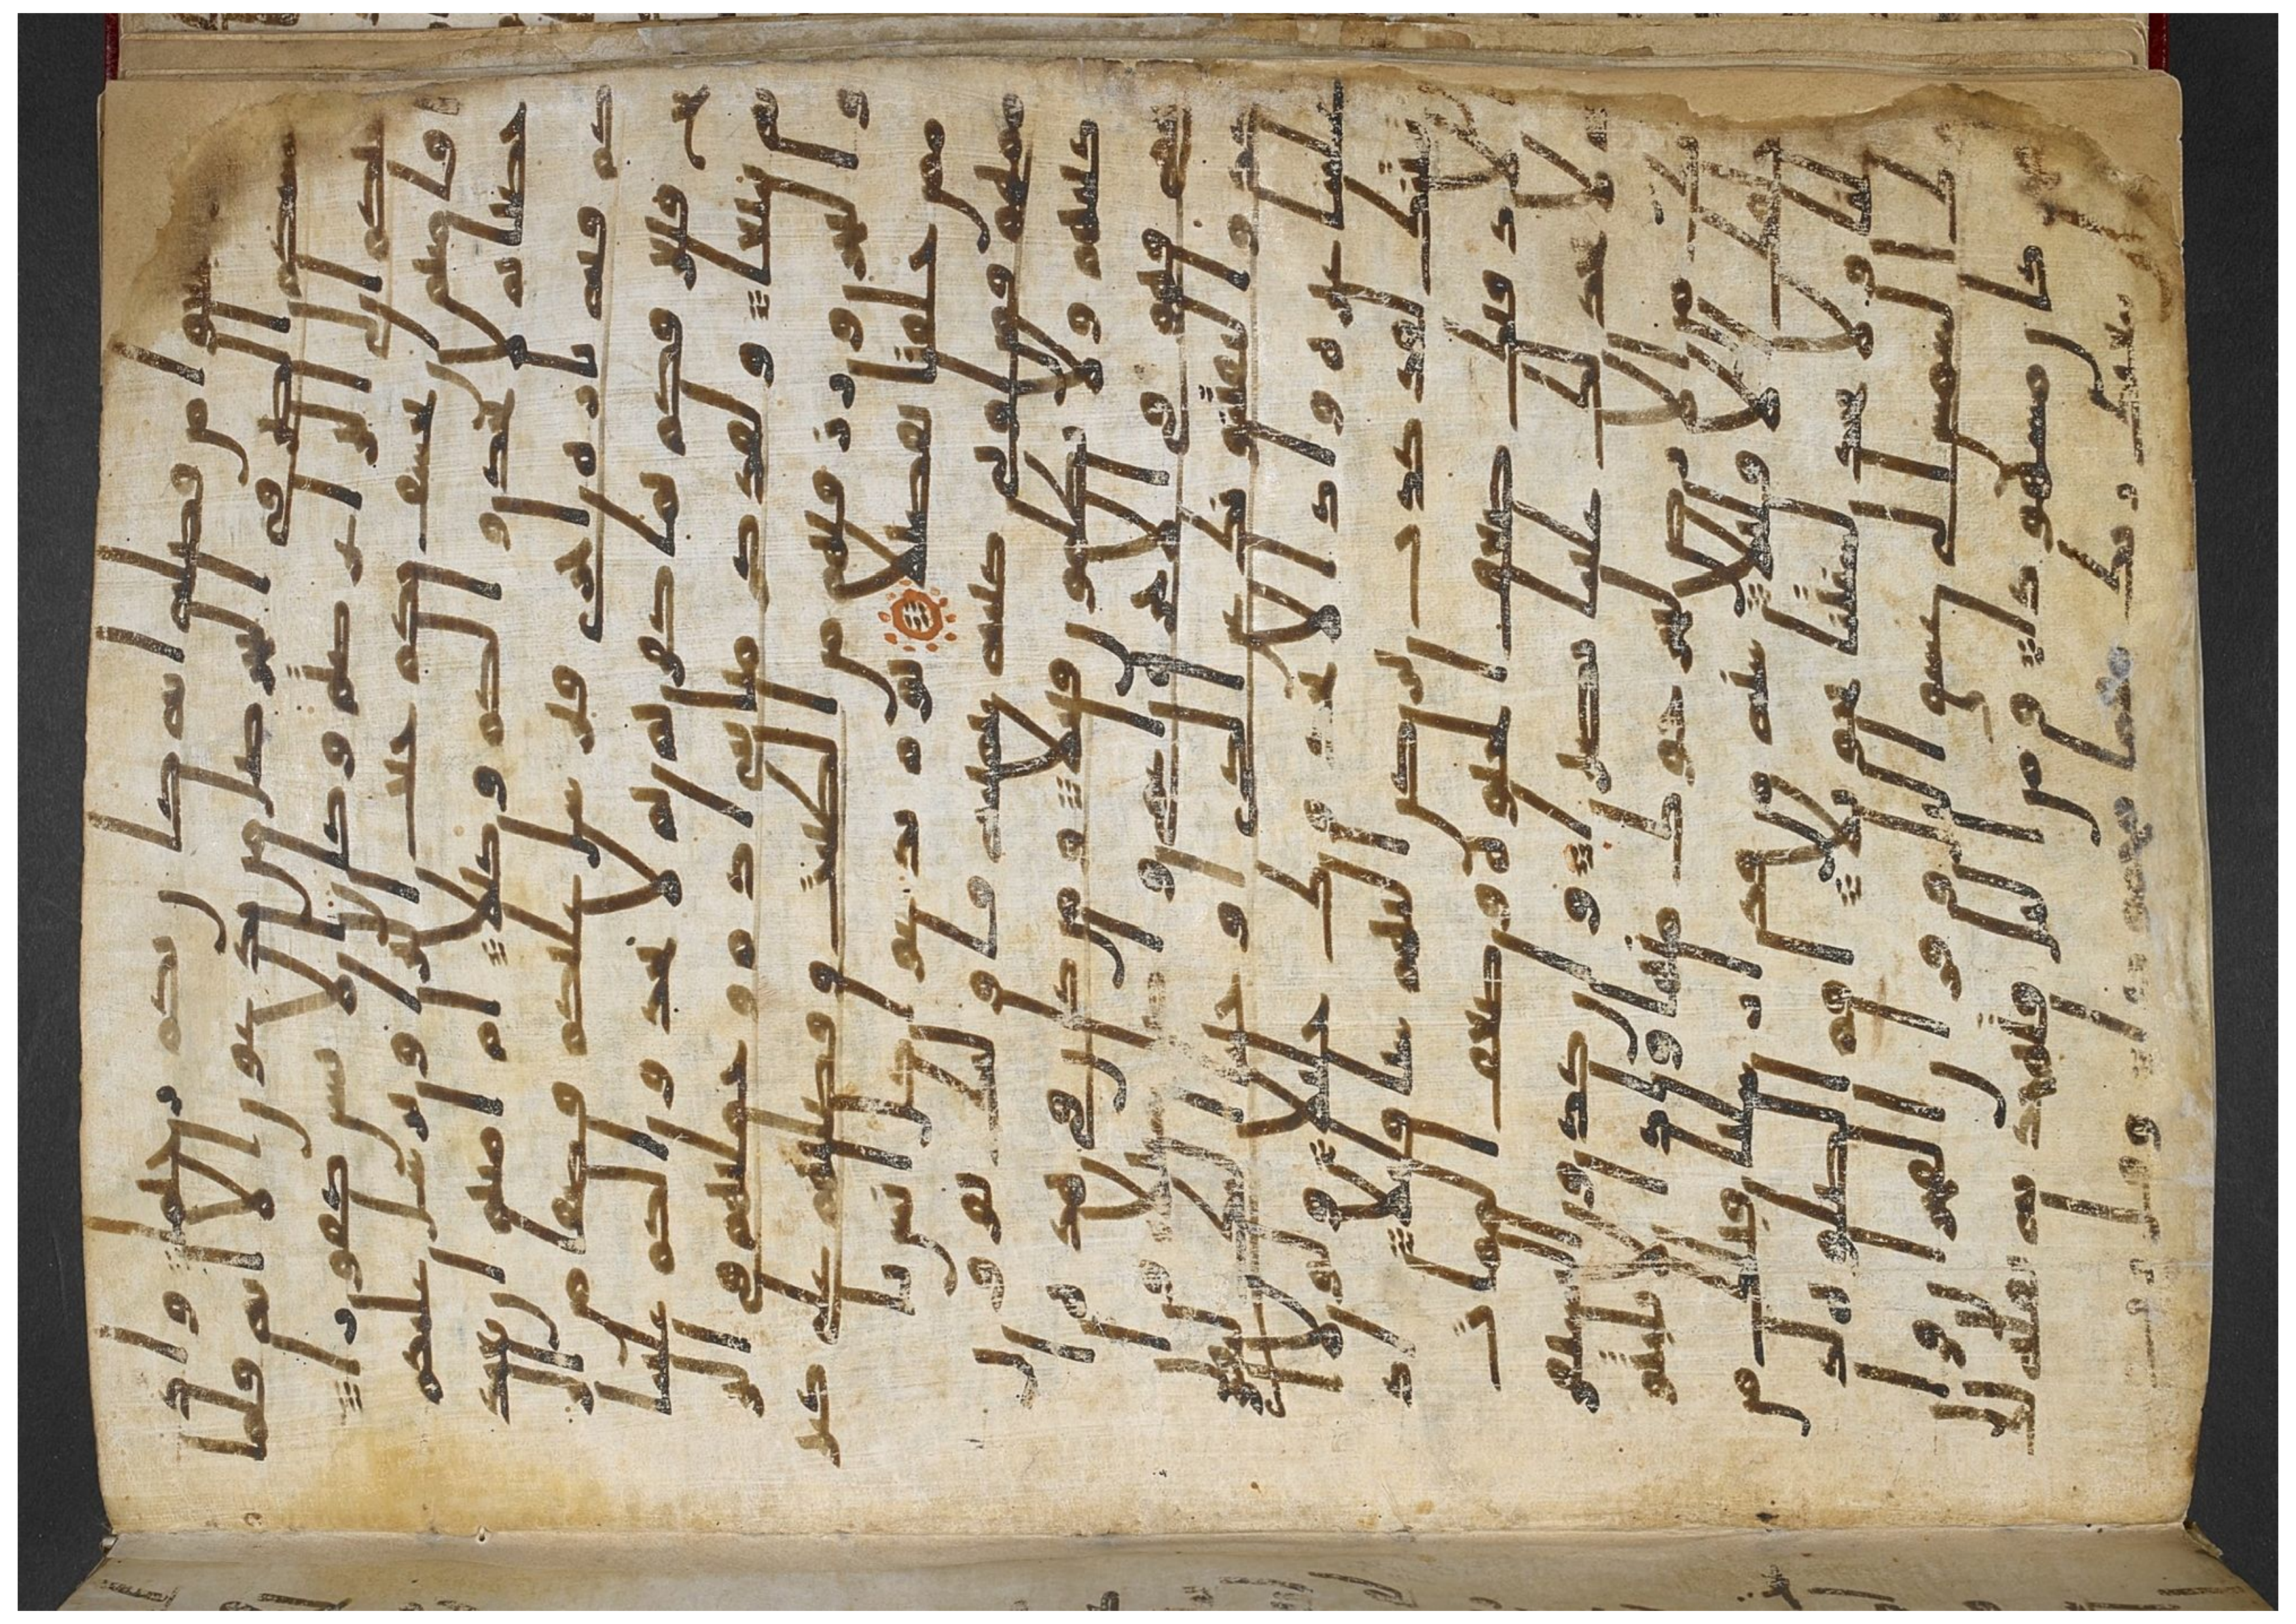 وا من فضله انه كان بكم رحيما واذا
مسكم الضر في البحر ضل من تدعون الا اياه فلما
نجيكم الى البر اعرضتم وكان الانسن كفورا
افامنتم ان يخسف بكم جانب البر او يرسل عليكم
حاصبا ثم لا تجدوا لكم وكيلا ام امنتم ان يعيد
كم فيه تارة اخرى فيرسل عليكم قاصفا من الر
يح فيغرقكم بما كفرتم ثم لا تجدوا لكم علينا
به تبيعا ولقد كرمنا بني ادم وحملنهم في البر
والبحر ورزقنهم من الطيبت وفضلنهم على كثير
ممن خلقنا تفضيلا يوم ندعوا كل اناس با
ممهم فمن اوتي كتبه بيمينه فاولئك يقرون
كتبهم ولا يظلمون فتيلا ومن كان في هذه ا
عمى فهو في الاخرة اعمى واضل سبيلا وان
كادوا ليفتنونك عن الذي اوحينا اليك لتفتري
علينا غيره واذا لاتخذوك خليلا ولولا ان
ثبتنك لقد كدت تركن اليهم شيا قليلا اذا
لاذقنك ضعف الحيوة وضعف الممات ثم
لا تجد لك علينا نصيرا وان كادوا ليستفزو
نك من الارض ليخرجوك منها واذا لا يلبثون
خلفك الا قليلا سنة من قد ارسلنا قبلك من
رسلنا ولا تجد لسنتنا تحويلا اقم الصلوة لد
لوك الشمس الى غسق اليل وقران الفجر ان
قران الفجر كان مشهودا ومن اليل فتهجد به نافلة لك